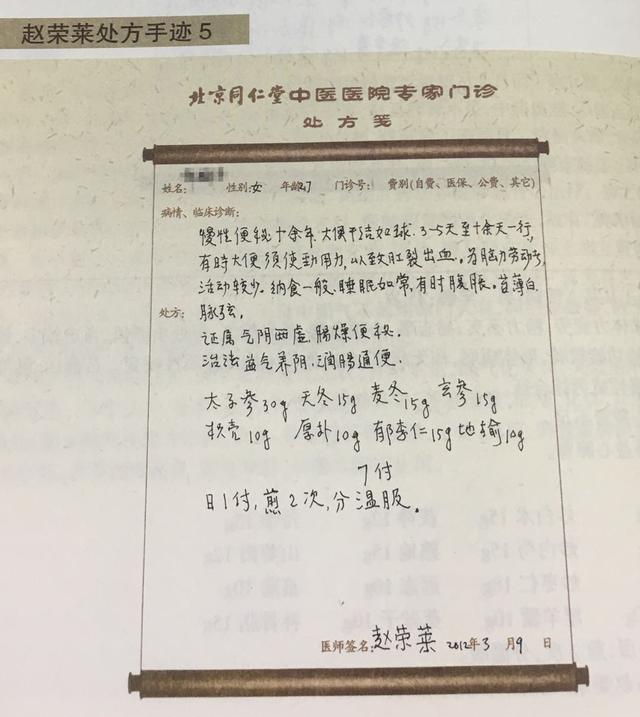 赵荣莱处方手迹5
北京同仁堂中医医院专家门诊
处方笺
姓名: 性别:女 年龄: 门诊号: 费别(自费、医保、公费、其它)
病情、临床诊断:
慢性便秘十余年.大便干结如球.3-5天至十余天一行,
有时大便须使劲用力,以致肛裂出血。为脑力劳动者,
活动较少.纳食一般.睡眠如常,有时腹胀。苔薄白
处方: 脉弦。
证属气阴两虚,肠燥便秘.
治法益气养阴.润肠通便.
太子参30g 天冬15g 麦冬15g 玄参15g
枳壳10g 厚朴10g 郁李仁15g 地榆10g
7付
日1付,煎2次,分温服。
医师签名:赵荣莱 2012年3月9日